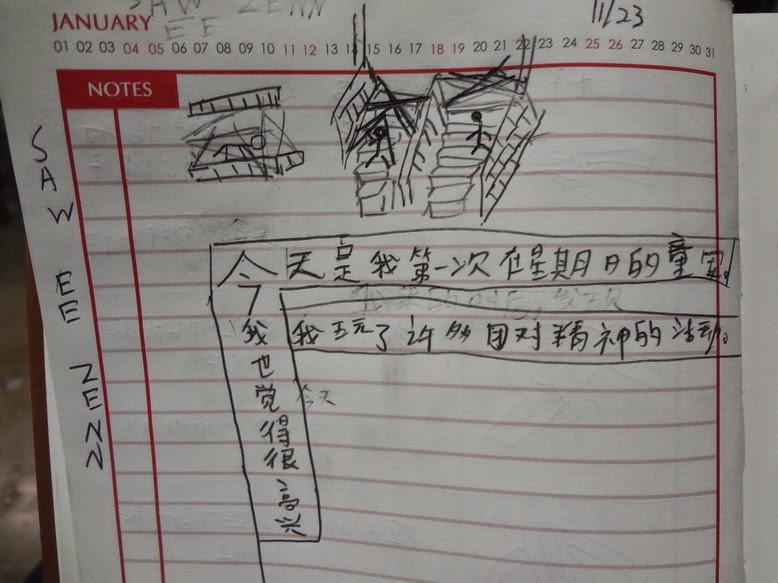 SAW ZENN
EE
11/23
JANUARY
01 02 03 04 05 06 07 08 09 10 11 12 13 14 15 16 17 18 19 20 21 22 23 24 25 26 27 28 29 30 31
NOTES
SAW EE ZENN
今天是我第一次在星期日的童军。
我玩了许多团对精神的活动。
我也觉得很高兴
今天